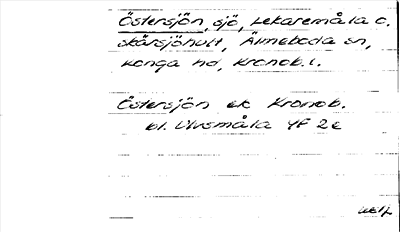 Östersjön, sjö, Lekaremåla o.
Skärsjöhult, Älmeboda sn,
Konga hd, Kronob. l.
Östersjön ek Kronob.
bl. Ulvsmåla 4F 2e